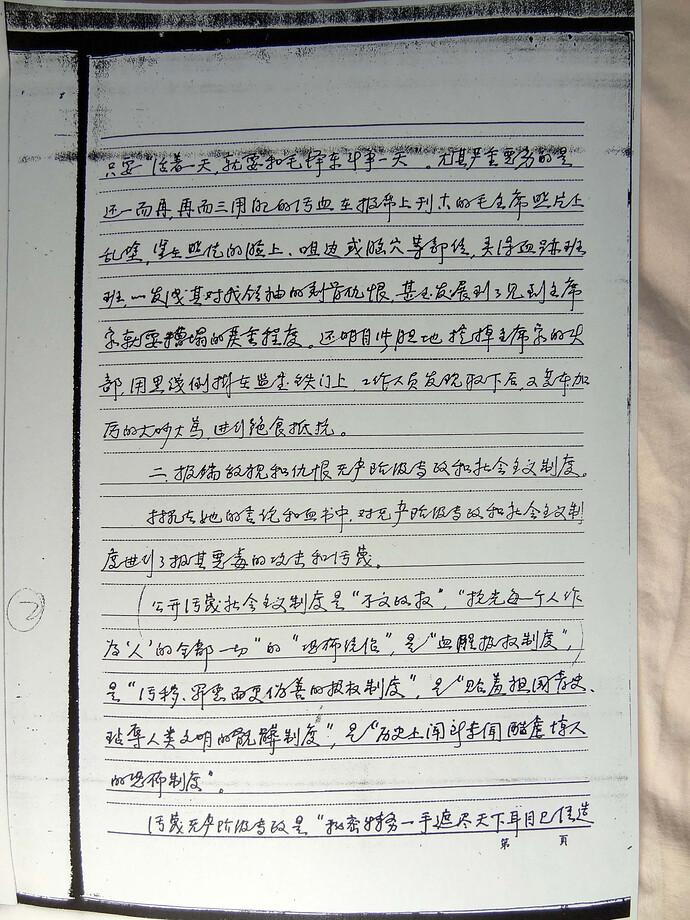 只要“活着一天，就要和毛泽东斗争一天”。尤其严重恶劣的是
还一而再，再而三用她的污血在报章上刊布的毛主席照片上
乱涂，竟在照片的脸上、咀边或脸穴等部位，弄得血迹班
班，以发泄其对我领袖的刻骨仇恨，甚至发展到了见到主席
象就要糟塌的严重程度。还明目张胆地拴掉主席象的头
部，用黑线倒挂在监房铁门上，工作人员发现取下后，又变本加
厉的大吵大骂，进行绝食抵抗。
二、极端敌视和仇恨无产阶级专政和社会主义制度。
在她的言论和血书中，对无产阶级专政和社会主义制
度进行了极其恶毒的攻击和污蔑。
公开污蔑社会主义制度是“不义政权”，“抢光每一个人作
为‘人’的全部一切”的“恐怖统治”，是“血腥极权制度”，
是“污秽、罪恶而更伪善的极权制度”，是“贻羞祖国青史、
玷辱人类文明的骯髒制度”，是“历史上闻所未闻酷虐惨人
的恐怖制度”。
污蔑无产阶级专政是“秘密特务一手遮尽天下耳目已任造
第 页
2